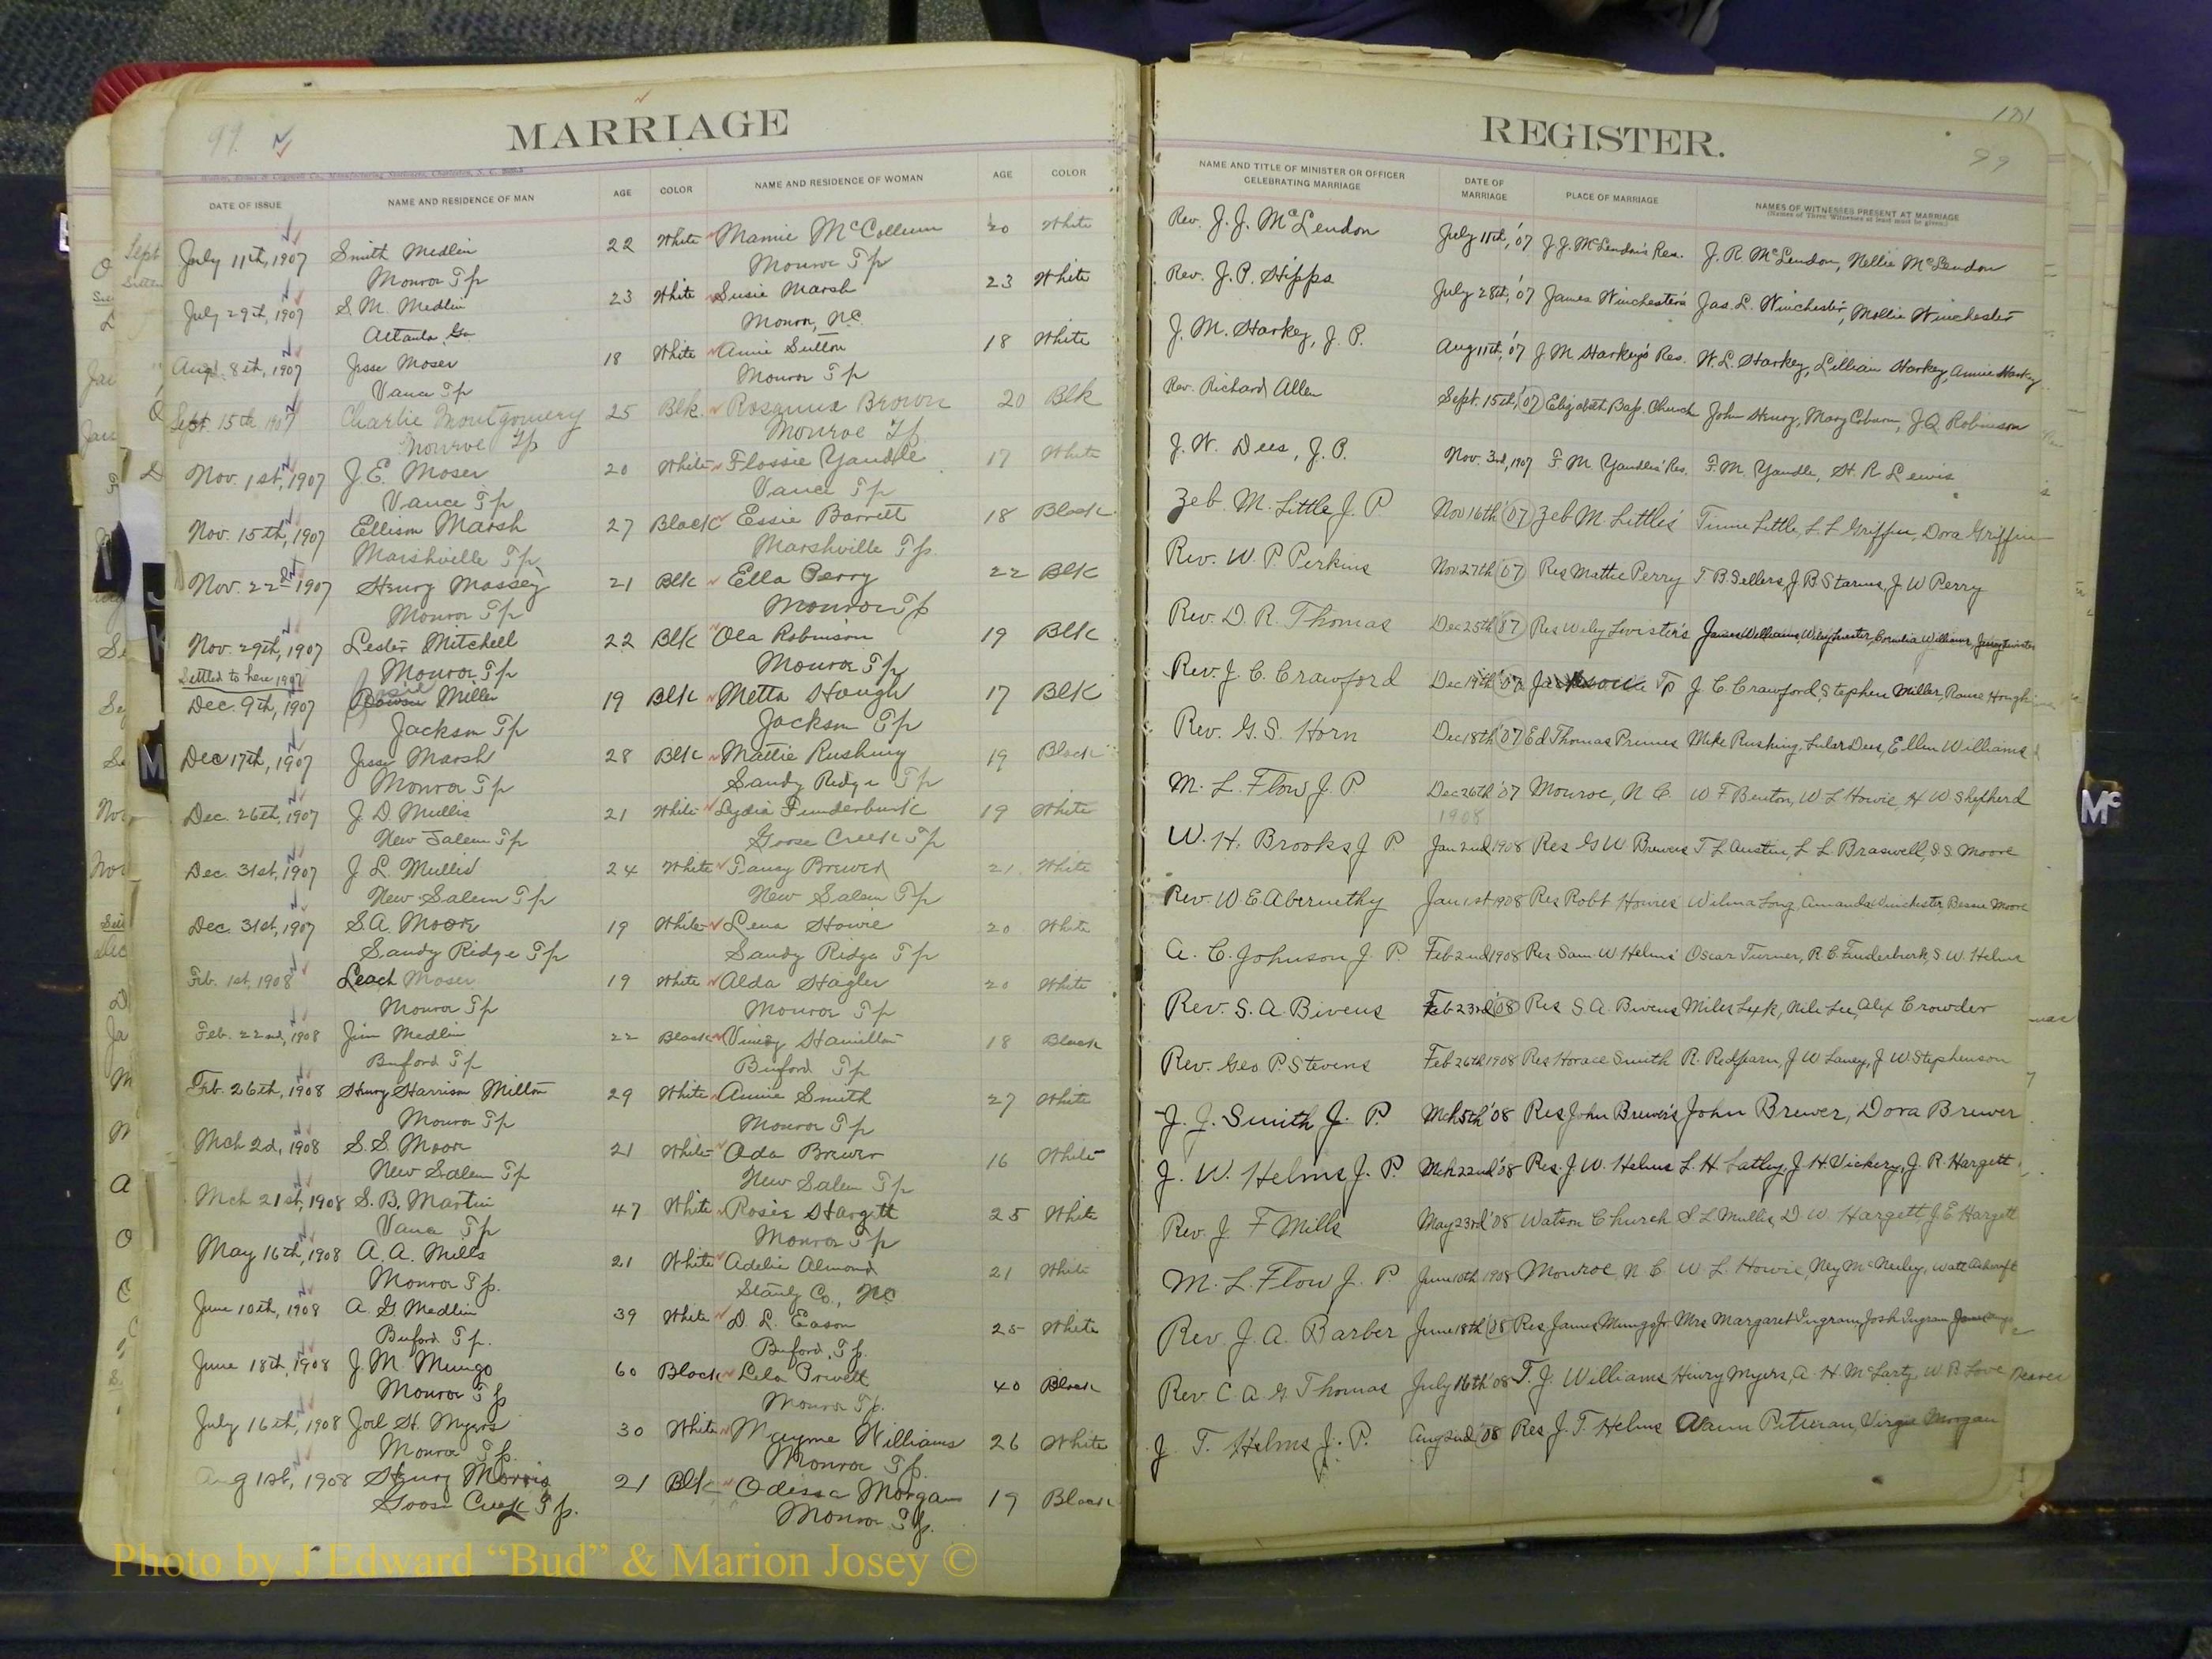 MARRIAGE
99
DATE OF ISSUE NAME AND RESIDENCE OF MAN AGE COLOR NAME AND RESIDENCE OF WOMAN AGE COLOR
July 11th, 1907 Smith Medlin 22 White Mamie McCollum 20 White
Monroe Tp Monroe Tp
July 29th, 1907 S. M. Medlin 23 White Susie Marsh 23 White
Atlanta, Ga Monroe, N.C.
Aug. 8th, 1907 Jesse Moser 18 White Annie Sutton 18 White
Vance Tp Monroe Tp
Sept 15th 1907 Charlie Montgomery 25 Blk. Rosanna Brown 20 Blk
Monroe Tp Monroe Tp
Nov. 1st, 1907 J. E. Moser 20 White Flossie Yandle 17 White
Vance Tp Vance Tp
Nov. 15th, 1907 Ellison Marsh 27 Black Essie Barrett 18 Black
Marshville Tp Marshville Tp
Nov. 22nd 1907 Henry Massey 21 Blk Ella Perry 22 Blk
Monroe Tp Monroe Tp
Nov. 29th, 1907 Lester Mitchell 22 Blk Ola Robinson 19 Blk
Settled to here 1907 Monroe Tp Monroe Tp
Dec. 9th, 1907 Miller 19 Blk Metta Hough 17 Blk
Jackson Tp Jackson Tp
Dec 17th, 1907 Jesse Marsh 28 Blk Mattie Rushing 19 Black
Monroe Tp Sandy Ridge Tp
Dec. 26th, 1907 J. D. Mullis 21 White Lydia Funderburk 19 White
New Salem Tp Goose Creek Tp
Dec. 31st, 1907 J. L. Mullis 24 White Pansy Brewer 21. White
New Salem Tp New Salem Tp
Dec. 31st, 1907 S. A. Moore 19 White Lena Howie 20 White
Sandy Ridge Tp Sandy Ridge Tp
Feb. 1st, 1908 Leach Moser 19 White Alda Hagler 20 White
Monroe Tp Monroe Tp
Feb. 22nd, 1908 Jim Medlin 22 Black Hamilton 18 Black
Buford Tp Buford Tp
Feb. 26th, 1908 Henry Harrison Milton 29 White Annie Smith 27 White
Monroe Tp Monroe Tp
Mch 2d, 1908 S. S. Moore 21 White Ada Brewer 16 White
New Salem Tp New Salem Tp
Mch 21st, 1908 S. B. Martin 47 White Rosie Hargett 25 White
Vance Tp Monroe Tp
May 16th, 1908 A. A. Mills 21 White Adelie Almond 21 White
Monroe Tp. Stanly Co., NC
June 10th, 1908 A. G. Medlin 39 White D. L. Eason 25 White
Buford Tp. Buford, Tp.
June 18th, 1908 J. M. Mungo 60 Black Lela Privett 40 Black
Monroe Tp Monroe Tp.
July 16th, 1908 Joel H. Myers 30 White Mayme Williams 26 White
Monroe Tp. Monroe Tp.
Aug 1st, 1908 Henry Morris 21 Blk Odessa Morgan 19 Black
Goose Creek Tp. Monroe Tp.
REGISTER.
99
NAME AND TITLE OF MINISTER OR OFFICER CELEBRATING MARRIAGE DATE OF MARRIAGE PLACE OF MARRIAGE NAMES OF WITNESSES PRESENT AT MARRIAGE
(Names of Three Witnesses at least must be given.)
Rev. J. J. McLendon July 11th, '07 J. J. McLendon's Res. J. R. McLendon, Nellie McLendon
Rev. J. P. Hipps July 28th, '07 James Winchester's Jas. L. Winchester, Mollie Winchester
J. M. Harkey, J. P. Aug 11th, '07 J. M. Harkey's Res. W. L. Harkey, Lillian Harkey, Annie Harkey
Rev. Richard Allen Sept. 15th, '07 Elizabeth Bap. Church John Henry, Mary Coburn, J. Q. Robinson
J. W. Dees, J. P. Nov. 3rd, 1907 F. M. Yandles' Res. F. M. Yandle, H. R Lewis
Zeb M. Little J. P Nov 16th '07 Zeb M. Littles' Little, L L Griffin, Dora Griffin
Rev. W. P. Perkins Nov 27th '07 Res Mattie Perry T. B. Sellers, J B Starnes, J W Perry
Rev. D. R. Thomas Dec 25th '07 Res James Williams, Cornelia Williams
Rev. J. C. Crawford Dec 19th '07 Jackson Tp J. C. Crawford, Stephen Miller, Hough
Rev. G. S. Horn Dec 18th '07 Ed Thomas Mike Rushing, Dees, Ellen Williams
M. L. Flow J. P Dec 26th '07 Monroe, N. C. W F Benton, W L Howie, H W Shepherd
1908
W. H. Brooks J P Jan 2nd 1908 Res G W Brewers T L Austin, L L Braswell, S S Moore
Rev. W E Abernethy Jan 1st 1908 Res Robt Howies Wilma Long, Amanda Winchester, Bessie Moore
A. C. Johnson J. P. Feb 2nd 1908 Res Sam W Helms' Oscar Turner, R. C. Funderburk, S. W. Helms
Rev. S. A. Bivens Feb 23rd '08 Res S. A. Bivens Miles Lee, Alex Crowder
Rev. Geo P. Stevens Feb 26th 1908 Res Horace Smith R. Redfearn, J W Laney, J W Stephenson
J. J. Smith J. P. Mch 5th '08 Res John Brewer's John Brewer, Dora Brewer
J. W. Helms J. P. Mch 22nd '08 Res. J. W. Helms J. H. Vickery, J. R. Hargett
Rev. J. F Mills May 23rd '08 Watson Church S L Mullis, D. W. Hargett, J. E Hargett
M. L. Flow J. P June 10th 1908 Monroe, N. C. W. L. Howie, Ney McNeely, Watt Ashcraft
Rev. J. A. Barber June 18th '08 Res James Mungo Mrs Margaret Ingram, Josh Ingram
Rev C. A. G. Thomas July 16th '08 T. J. Williams Henry Myers, A. H. McLarty, W B Love
J. T. Helms J. P. Aug 2nd '08 Res J. T. Helms Virgie Morgan
Mc
Photo by J Edward “Bud” & Marion Josey ©